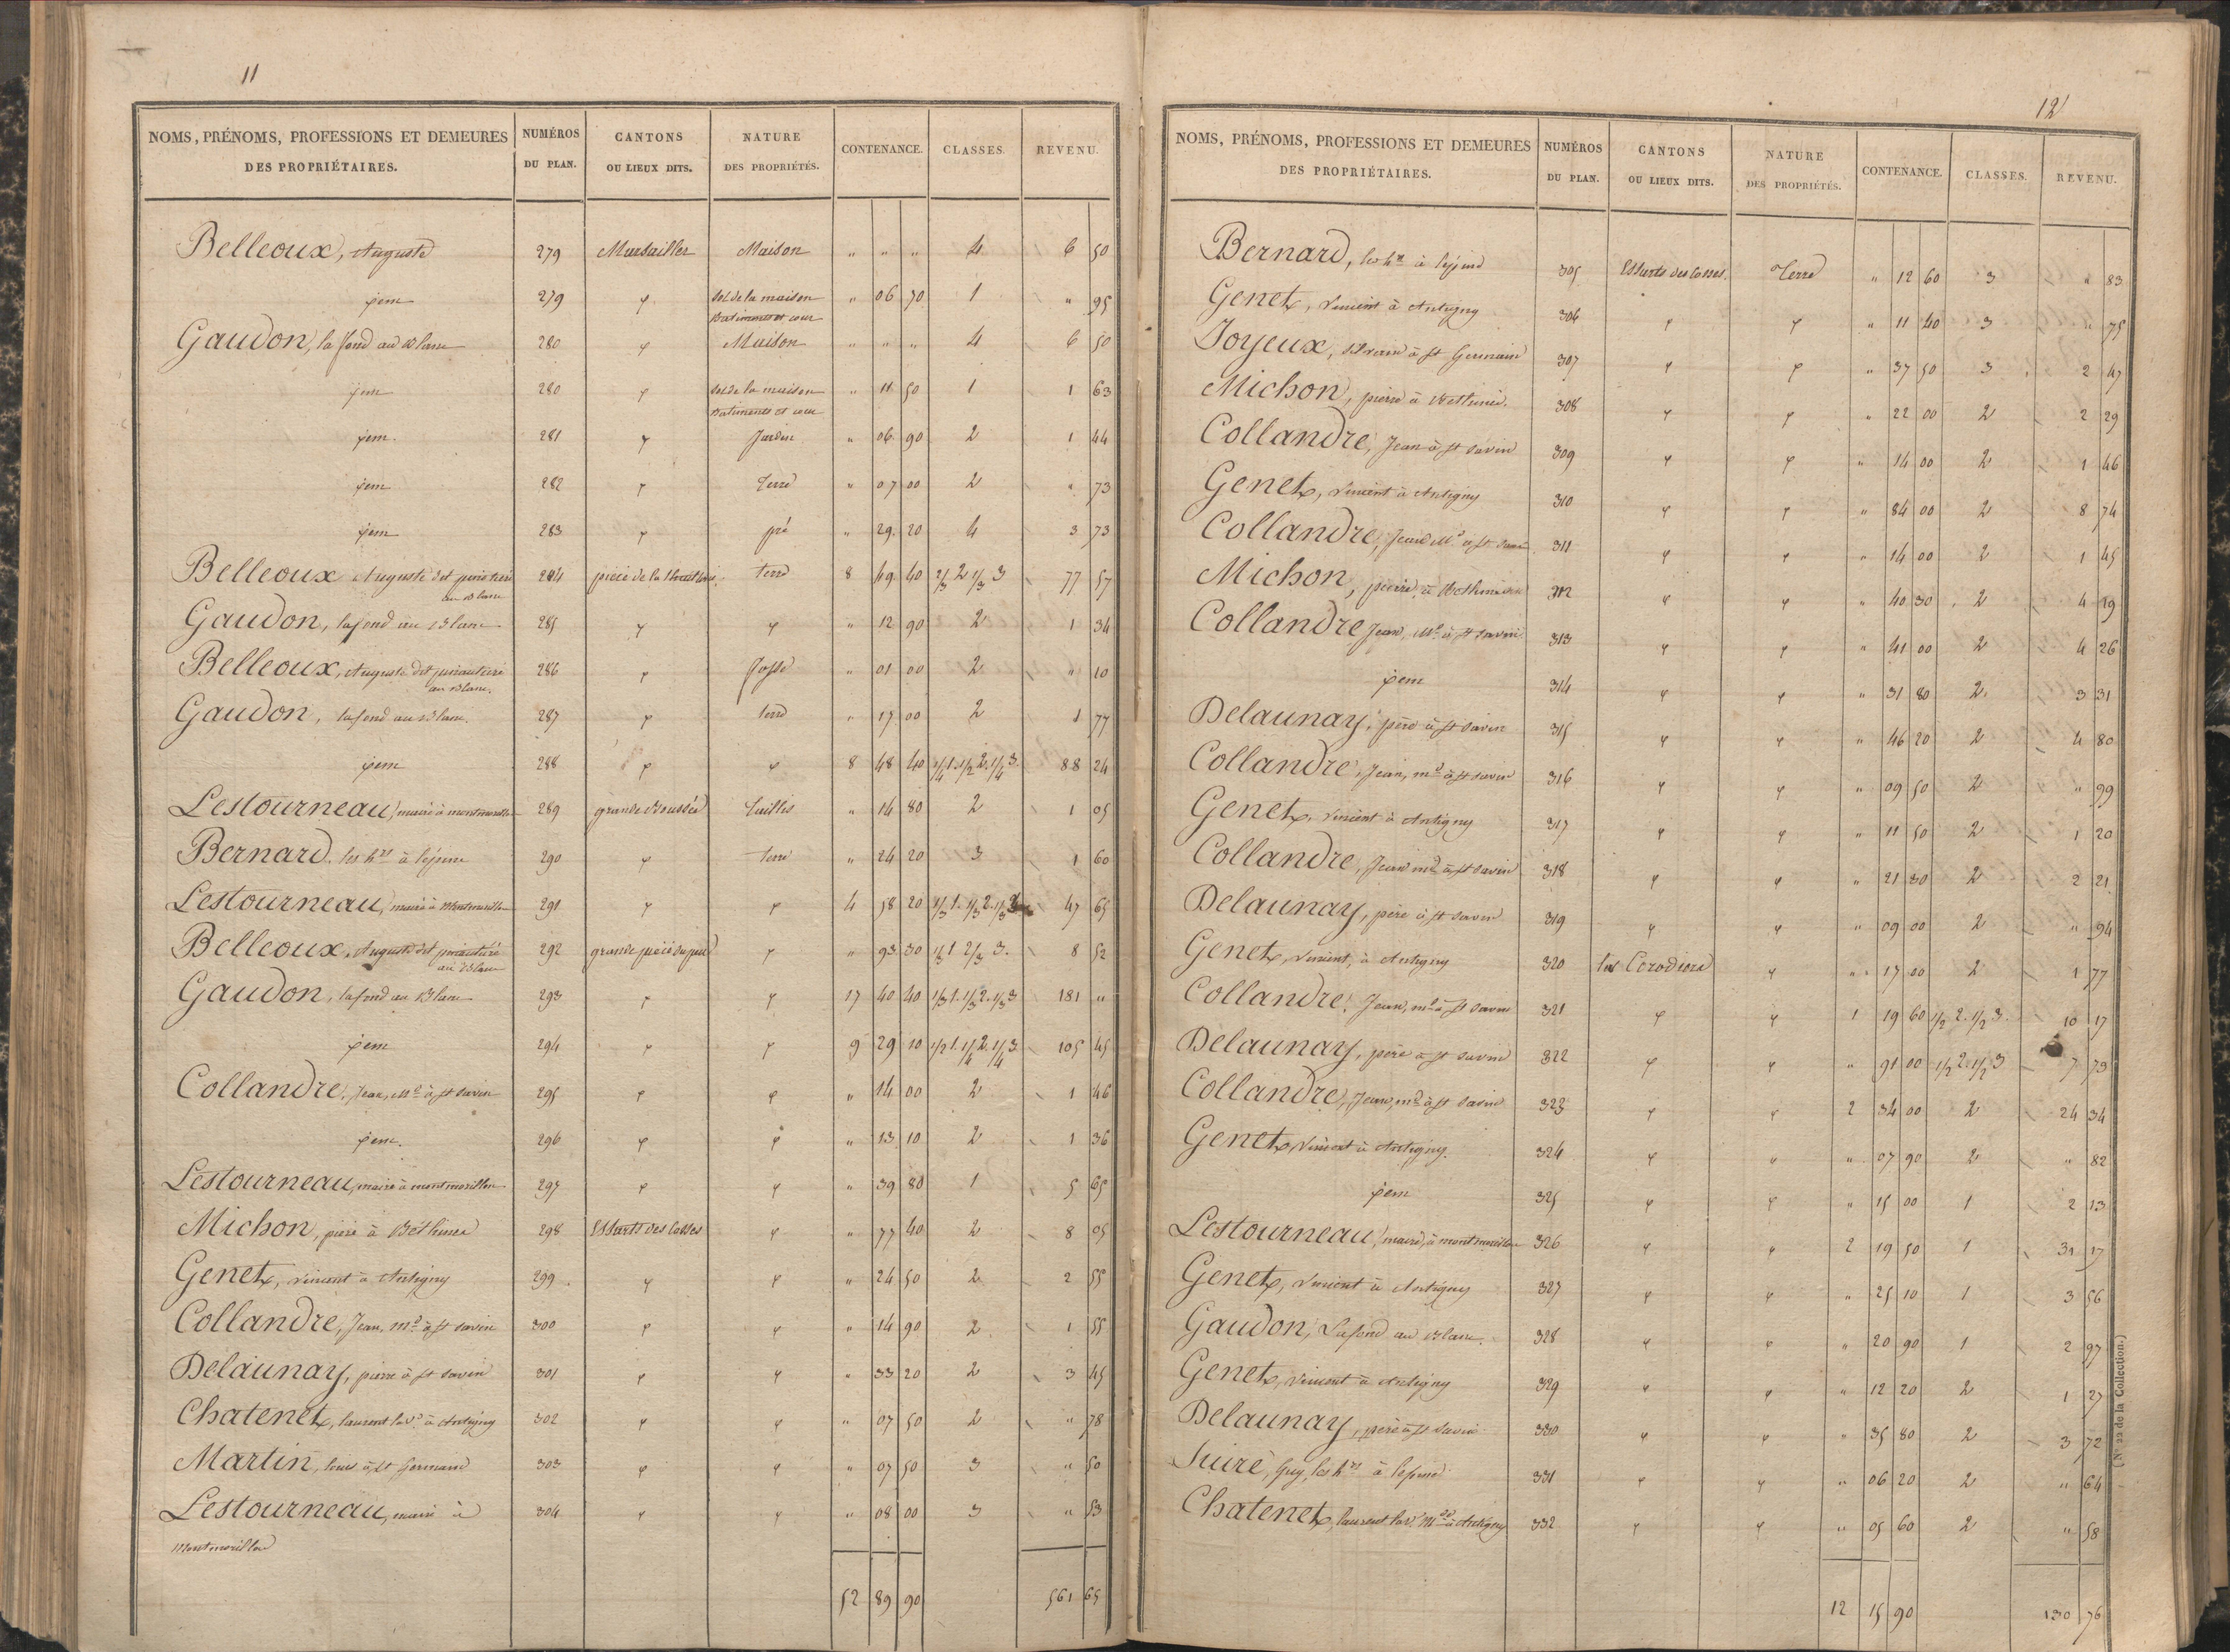 11
NOMS, PRÉNOMS, PROFESSIONS ET DEMEURES DES PROPRIÉTAIRES. NUMÉROS DU PLAN. CANTONS OU LIEUX DITS. NATURE DES PROPRIÉTÉS. CONTENANCE. CLASSES. REVENU.
Belleoux, Auguste 279 Marsailles Maison " " " 4 6 50
idem 279 id sol de la maison Batiments et cour " 06 70 1 " 95
Gaudon, lafond au Blanc 280 id Maison " " " 4 6 50
idem 280 id sol de la maison Batiments et cour " 11 50 1 1 63
idem. 281 id Jardin " 06 90 2 1 44
idem 282 id terre " 07 00 2 " 73
idem 283 id pré " 29 20 4 3 73
Belleoux Auguste dit au Blanc 284 pièce de la terre 8 49 40 2/3 2 1/3 3 77 57
Gaudon, lafond au Blanc 285 id id " 12 90 2 1 34
Belleoux, Auguste dit au Blanc. 286 id fosse " 01 00 2 " 10
Gaudon, lafond au Blanc. 287 id terre " 17 00 2 1 77
idem 288 id id 8 48 40 1/4 1. 1/2 2. 1/4 3 88 24
Lestourneau, maire à montmorillon 289 grande Taillis " 14 80 2 1 05
Bernard, les hrs à lejeune 290 id terre " 24 20 3 1 60
Lestourneau, maire à Montmorillon 291 id id 4 58 20 1/3 1. 1/3 2. 1/3 3 47 65
Belleoux, Auguste dit au Blanc 292 grande pièce du id " 93 30 1/3 1 2/3 3. 8 52
Gaudon, lafond au Blanc 293 id id 17 40 40 1/3 1. 1/3 2. 1/3 3 181 "
idem 294 id id 9 29 10 1/2 1. 1/4 2. 1/4 3 105 45
Collandre, Jean, Md à st savin 295 id id " 14 00 2 1 46
idem. 296 id id " 13 10 2 1 36
Lestourneau, maire à montmorillon 297 id id " 39 80 1 5 65
Michon, pierre à Béthines 298 Essarts des cosses id " 77 40 2 8 05
Genet, vincent à Antigny 299 id id " 24 50 2 2 55
Collandre, Jean, Md à st savin 300 id id " 14 90 2 1 55
Delaunay, pierre à st savin 301 id id " 33 20 2 3 45
Chatenet, laurent lav. à Antigny 302 id id " 07 50 2 " 78
Martin, louis à st Germain 303 id id " 07 50 3 " 50
Lestourneau, maire à 304 id id " 08 00 3 " 53
Montmorillon
52 89 90 561 65
12
NOMS, PRÉNOMS, PROFESSIONS ET DEMEURES DES PROPRIÉTAIRES. NUMÉROS DU PLAN. CANTONS OU LIEUX DITS. NATURE DES PROPRIÉTÉS. CONTENANCE. CLASSES. REVENU.
Bernard, les hrs à lejeune 305 Essarts des cosses. Terre " 12 60 3 " 83
Genet, vincent à Antigny 306 id id " 11 40 3 " 75
Joyeux, silvain à st Germain 307 id id " 37 50 3 2 47
Michon, pierre à Bethines. 308 id id " 22 00 2 2 29
Collandre, Jean à st savin 309 id id " 14 00 2 1 46
Genet, vincent à Antigny 310 id id " 84 00 2 8 74
Collandre, Jean Md à st savin 311 id id " 14 00 2 1 45
Michon, pierre, à Bethines 312 id id " 40 30 2 4 19
Collandre Jean, Md à st savin 313 id id " 41 00 2 4 26
idem 314 id id " 31 80 2 3 31
Delaunay, père à st savin 315 id id " 46 20 2 4 80
Collandre, Jean, md à st savin 316 id id " 09 50 2 " 99
Genet, vincent à Antigny 317 id id " 11 50 2 1 20
Collandre, Jean md à st savin 318 id id " 21 30 2 2 21
Delaunay, père à st savin 319 id id " 09 00 2 " 94
Genet, vincent, à Antigny 320 id " 17 00 2 1 77
Collandre, Jean, md à st savin 321 id id 1 19 60 1/2 2. 1/2 3. 10 17
Delaunay, père à st savin 322 id id " 91 00 1/2 2. 1/2 3 7 73
Collandre, Jean, md à st savin 323 id id 2 34 00 2 24 34
Genet, vincent à Antigny. 324 id id " 07 90 2 " 82
idem 325 id id " 15 00 1 2 13
Lestourneau, maire, à montmorillon 326 id id 2 19 50 1 31 17
Genet, vincent à Antigny 327 id id " 25 10 1 3 56
Gaudon, Lafond au Blanc. 328 id id " 20 90 1 2 97
Genet, vincent à Antigny 329 id id " 12 20 2 1 27
Delaunay, père à st savin 330 id id " 35 80 2 3 72
Suire, Guy, les hrs à 331 id id " 06 20 2 " 64
Chatenet, laurent lav. à Antigny 332 id id " 05 60 2 " 58
12 15 90 130 76
(N° 22 de la Collection.)